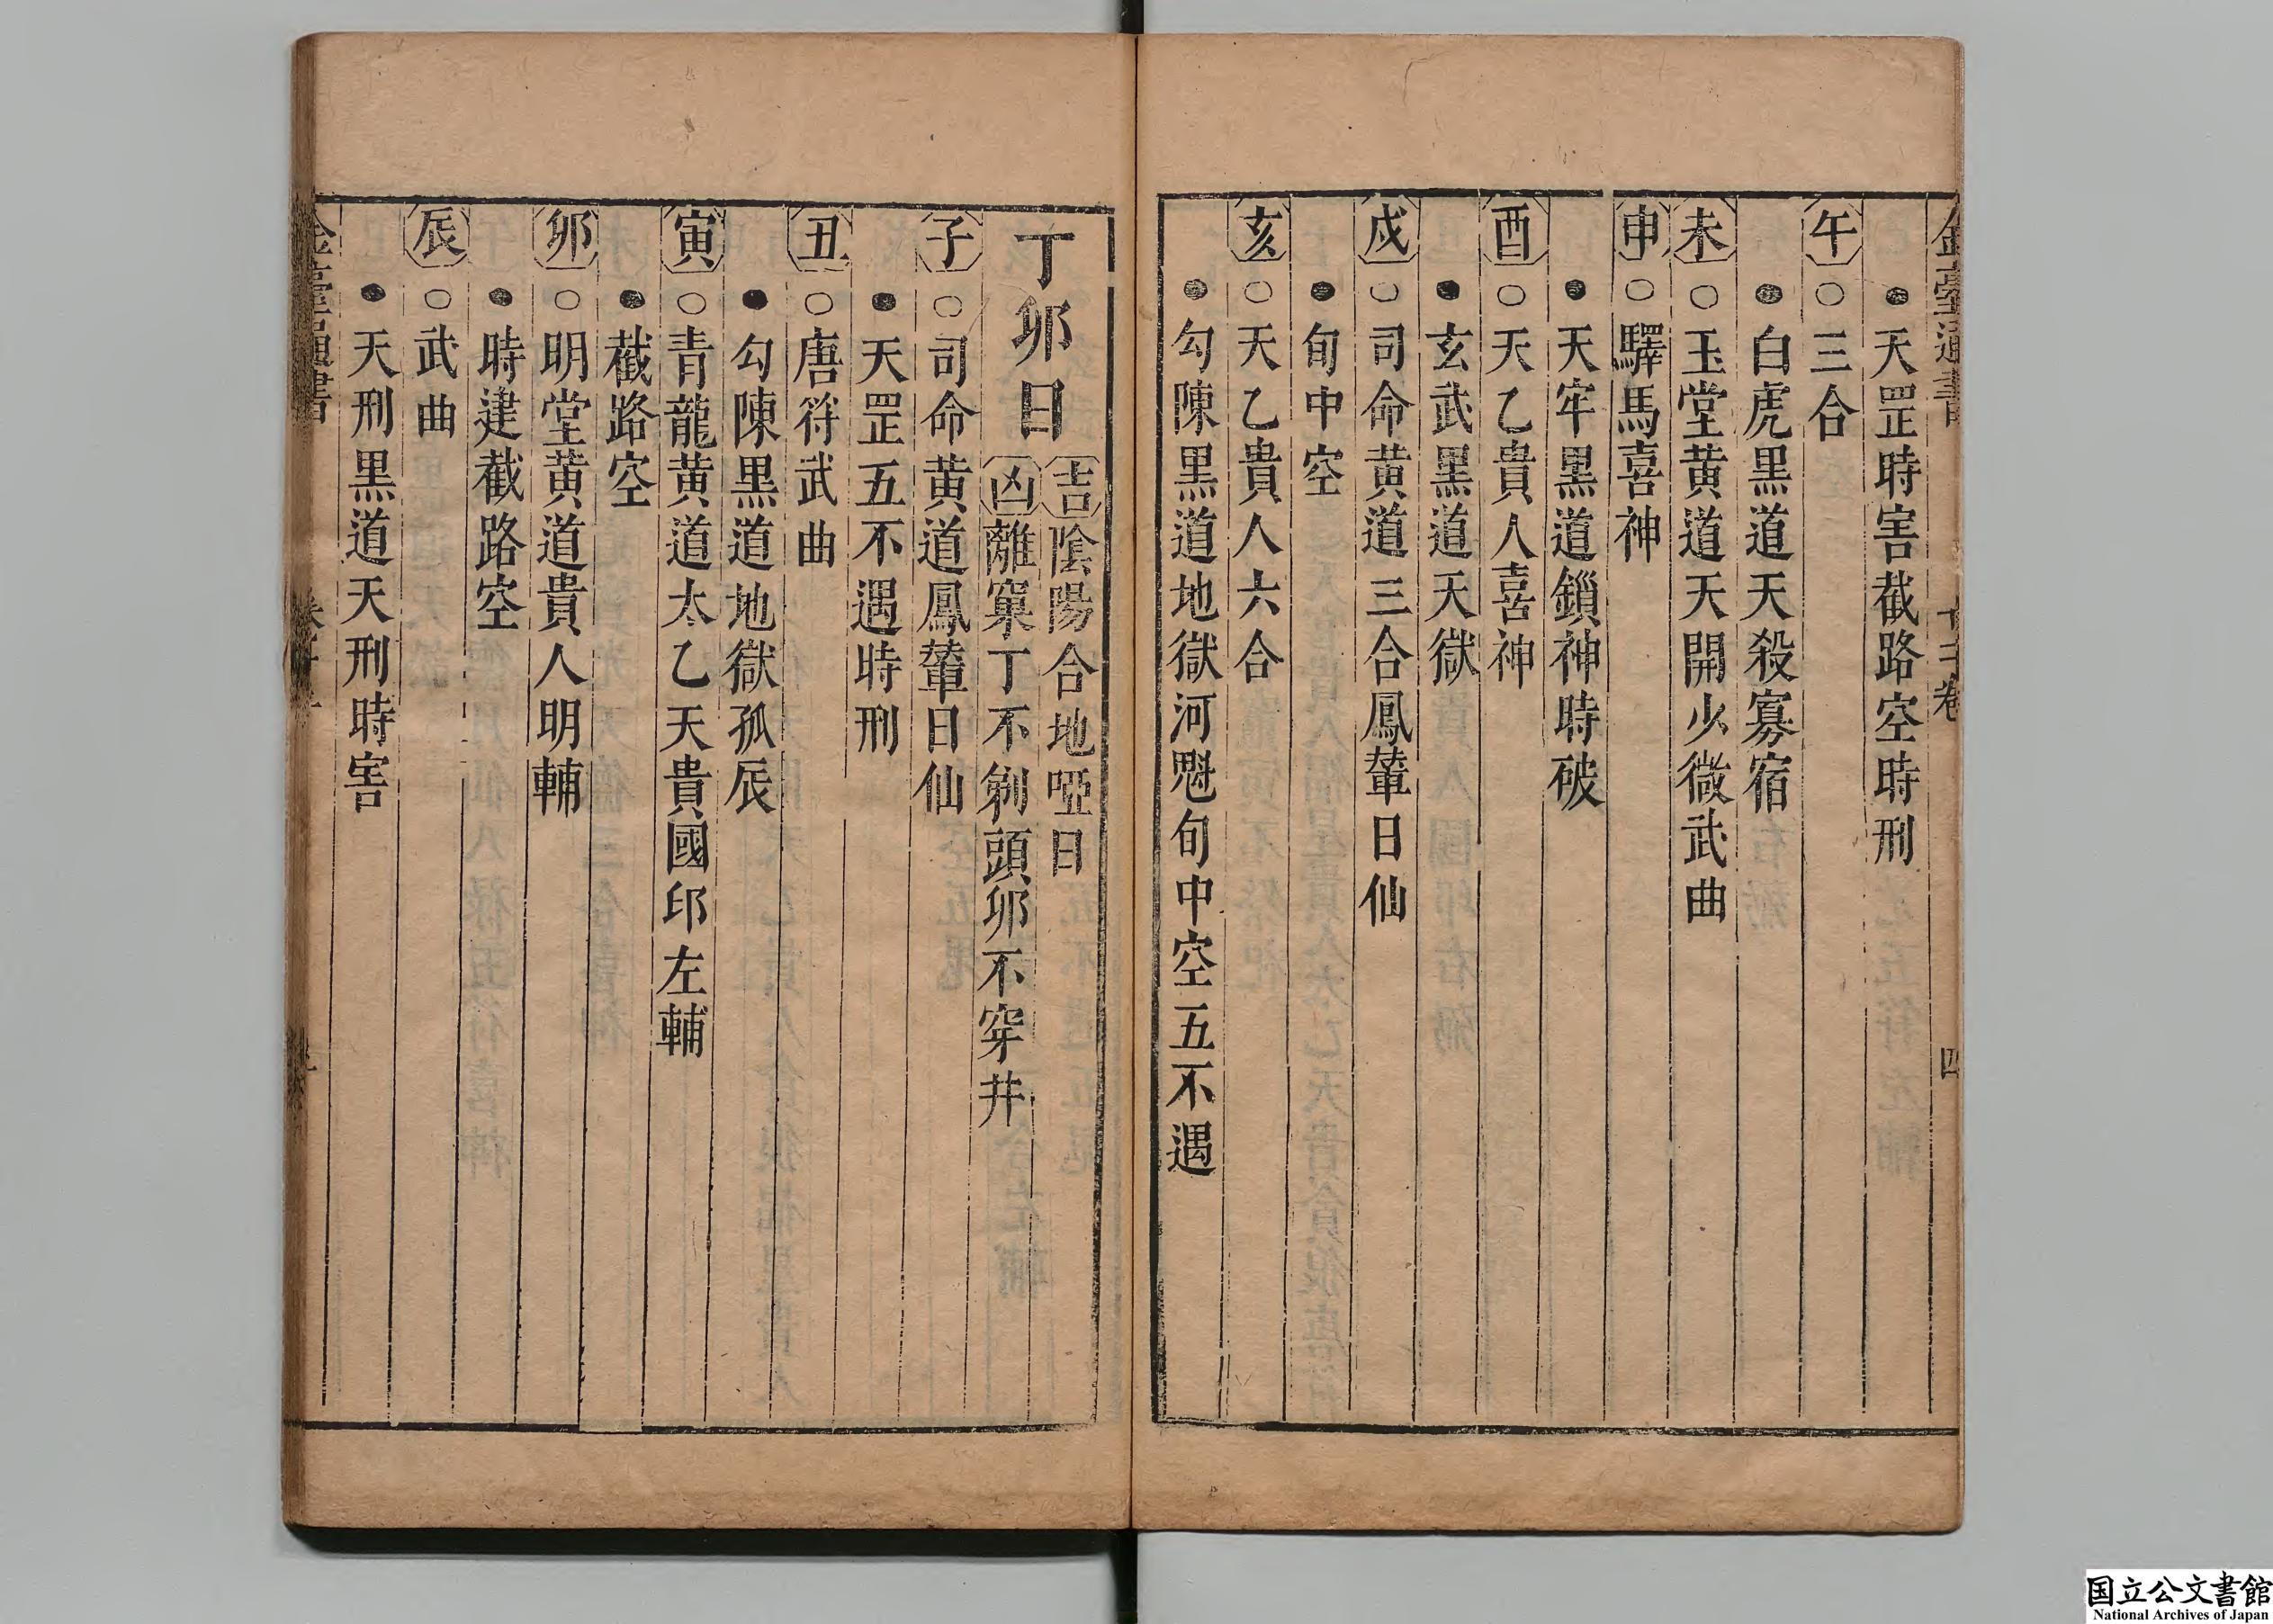 金臺通書 卷 四
●天罡時害截路空時刑
午○三合
●白虎黑道天殺寡宿
未○玉堂黄道天開少微武曲
申○驛馬喜神
●天牢黑道鎖神時破
酉○天乙貴人喜神
●玄武黑道天獄
戌○司命黄道三合鳳輦日仙
●旬中空
亥○天乙貴人六合
●勾陳黑道地獄河魁旬中空五不遇
丁卯日
吉陰陽合地啞日
凶離窠丁不剃頭卯不穿井
子○司命黄道鳳輦日仙
●天罡五不遇時刑
丑○唐符武曲
●勾陳黑道地獄孤辰
寅○青龍黄道太乙天貴國印左輔
●截路空
卯○明堂黄道貴人明輔
●時建截路空
辰○武曲
●天刑黑道天刑時害
国立公文書館
National Archives of Japan